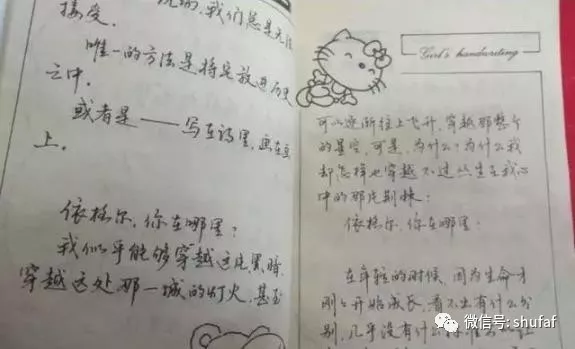 我们总是无法
接受。
唯一的方法是将它放进历史
之中。
或者是——写在诗里，画在
上。
依格尔，你在哪里？
我似乎能够穿越这片黑暗，
穿越这处那一城的灯火，甚至
Girl's handwriting
可以逐渐往上飞升，穿越那整个
的星空，可是，为什么？为什么我
却怎样也穿越不过丛生在我心
中的那片荆棘：
依格尔，你在哪里：
在年轻的时候，因为生命才
刚刚开始成长，看不出有什么分
别，几乎没有什么
微信号: shufaf